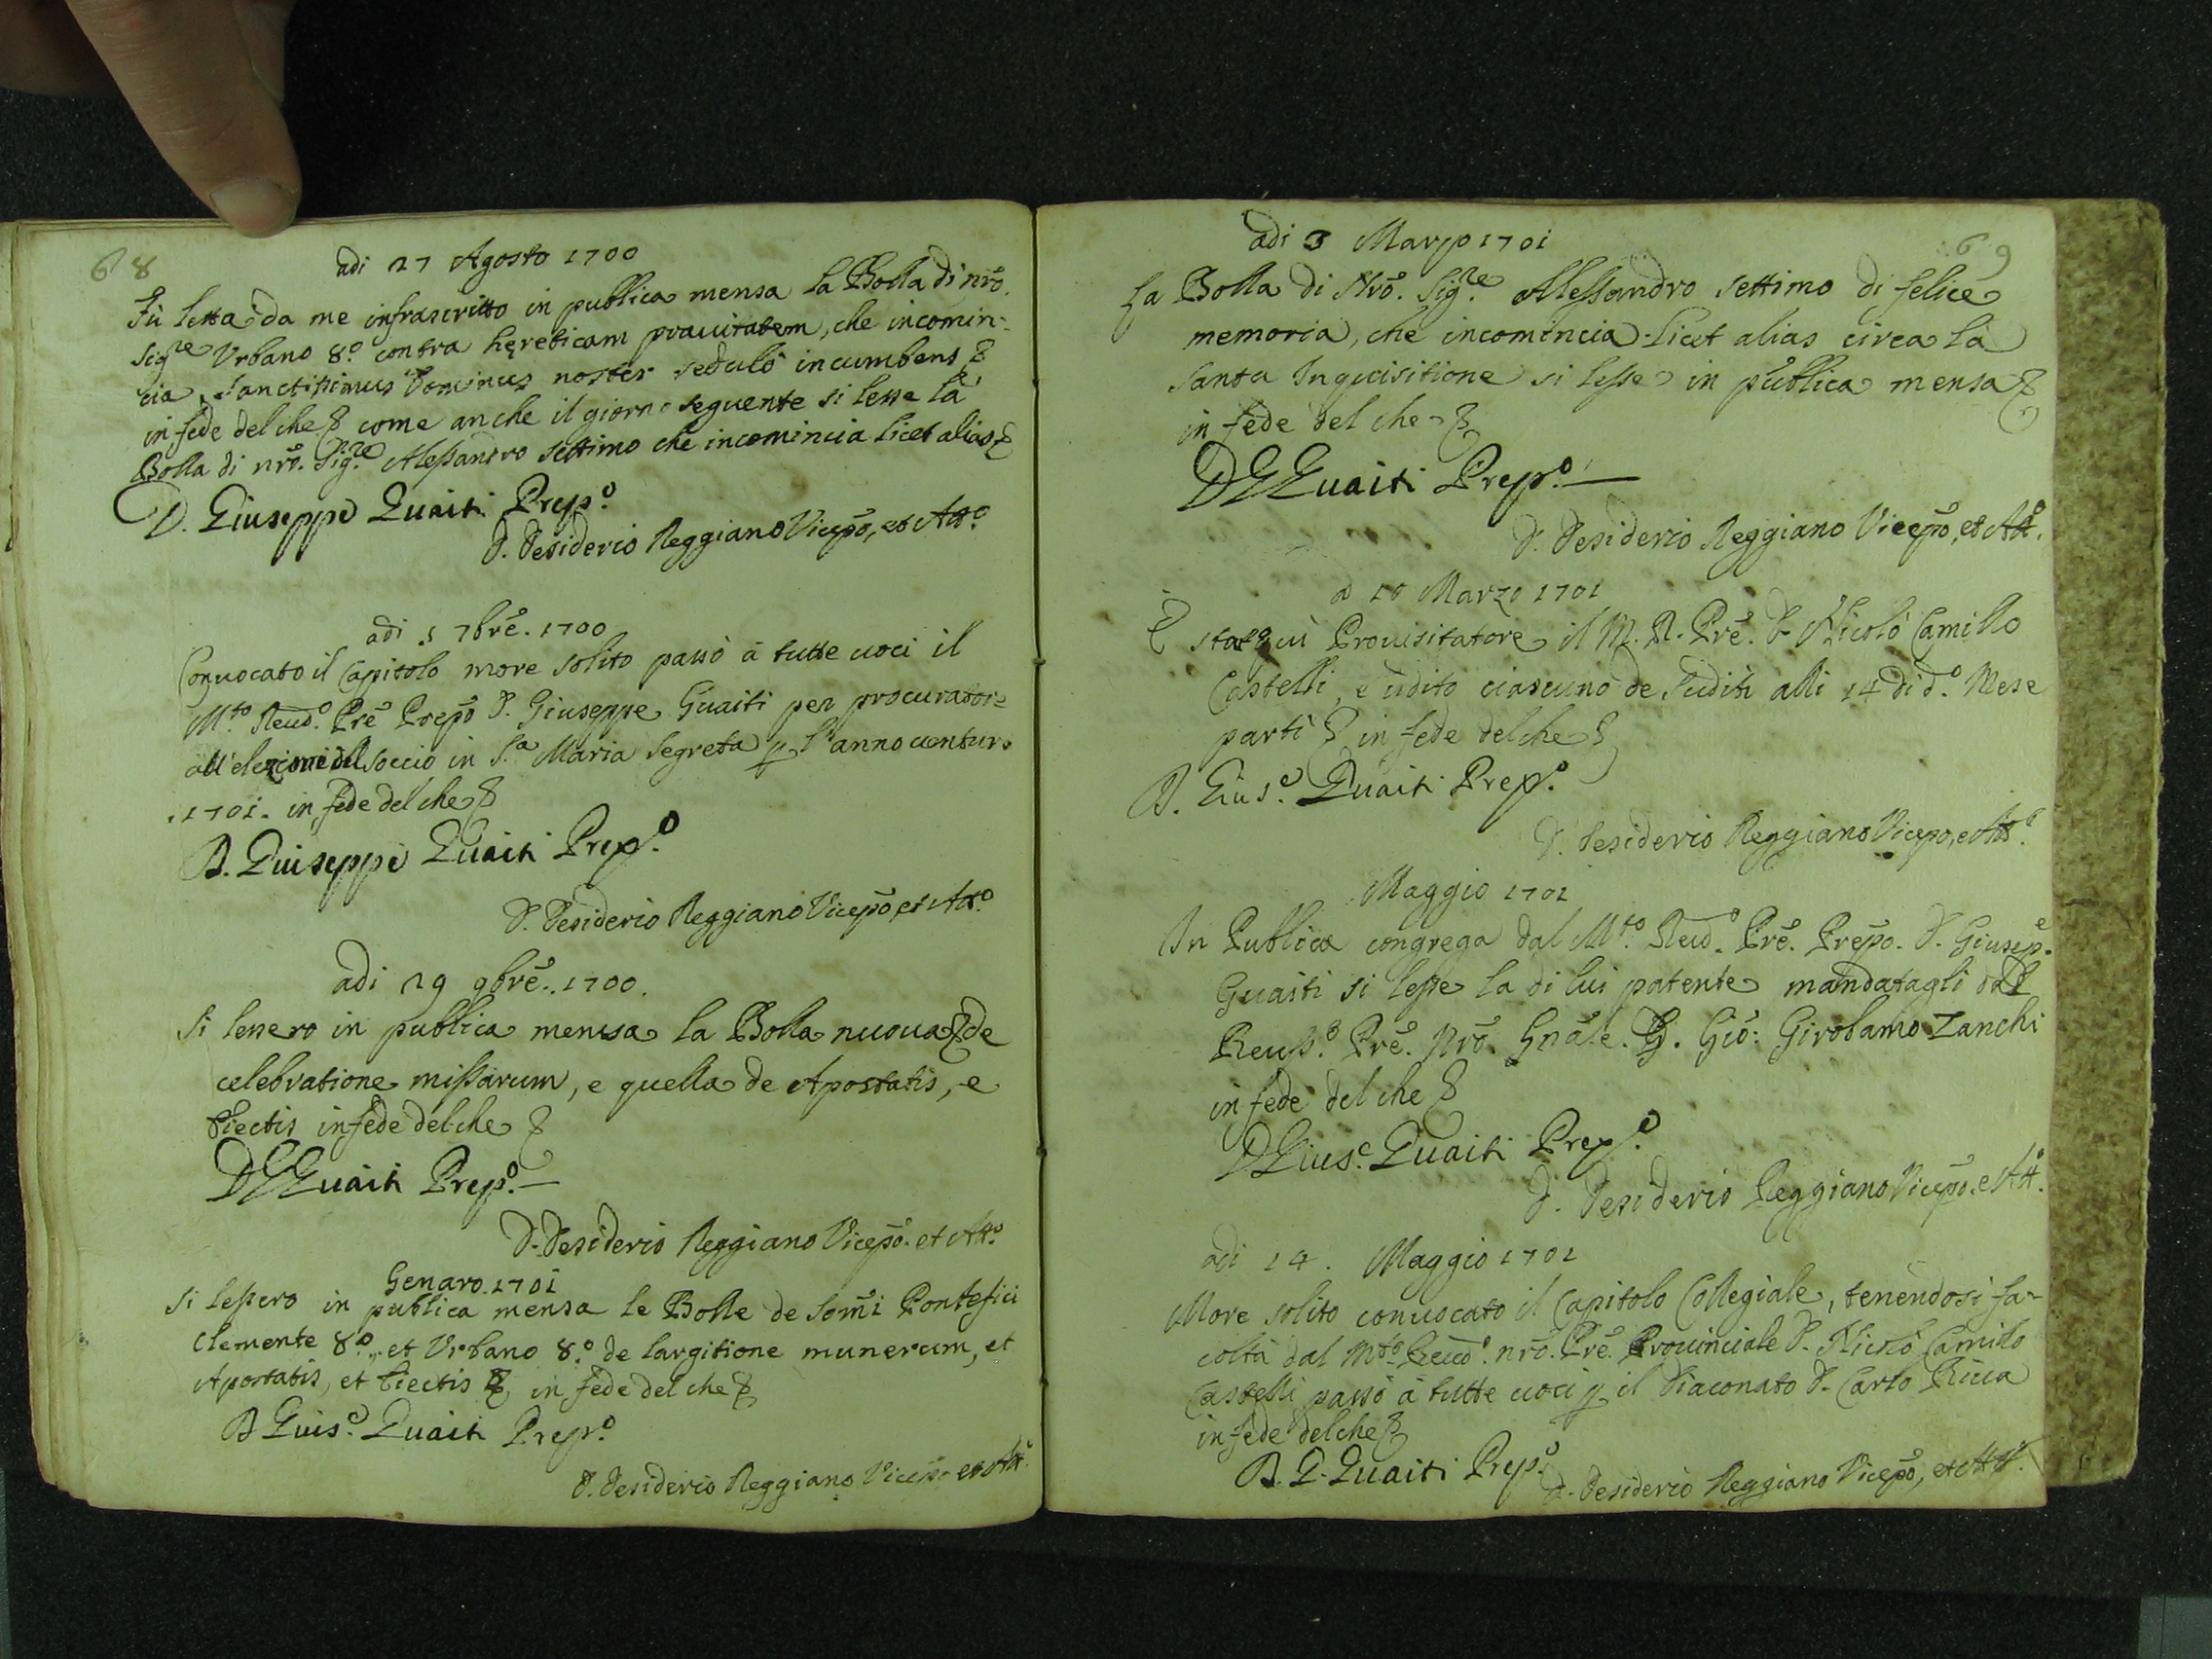 68
adi 27 Agosto 1700
Fù letta da me infrascritto in publica mensa la Bolla di nrõ.
Sig.re Vrbano 8.º contra hęreticam prauitatem, che incomin-
cia, Sanctissimus Dominus noster sedulò incumbens &
in fede del che & come anche il giorno seguente si lesse la
Bolla di nrõ. Sig.re Alessandro settimo che incomincia Licet alias &
D. Giuseppe Guaiti Prep.º
D. Desiderio Reggiano Vicepõ, et Att.º
adi .5 7brẽ. 1700
Conuocato il Capitolo more solito passò à tutte uoci il
M.to Reud.º Prẽ Prepõ D. Giuseppe Guaiti per procurator
all'elezione del soccio in S.a Maria Segreta p l'anno uenturo
.1701. in fede del che &
D. Giuseppe Guaiti Prep.º
D. Desiderio Reggiano Vicepõ, et Att.º
adi 29 9brẽ. 1700.
Si lessero in publica mensa la Bolla nuoua & de
celebratione missarum, e quella de Apostatis, e
Eiectis in fede del che &
D G Guaiti Prep.º
D. Desiderio Reggiano Vicepõ. et Att.º
Genaro. 1701
Si lessero in publica mensa le Bolle de Somĩ Pontefici
Clemente 8.º, et Vrbano 8.º de largitione munerum, et
Apostatis, et Eiectis & in fede del che &
D Gius.e Guaiti Prep.º
D. Desiderio Reggiano Vicepº et Att.º
69
adi 3 Marzo 1701
La Bolla di Nrõ. Sig.re Alessandro settimo di felice
memoria, che incomincia Licet alias circa la
Santa Inquisitione si lesse in publica mensa &
in fede del che &
D G Guaiti Prep.º
D. Desiderio Reggiano Vicepõ, et Att.º
a 10 Marzo 1701
È stato qui Prouisitatore il M. R. Prẽ. D. Nicolò Camillo
Castelli, e udito ciascuno de Suditi alli 14 di d.º Mese
partì & in fede del che &
D. Gius.e Guaiti Prep.º
D. Desiderio Reggiano Vicepo, e Att.º
Maggio 1701
In Publica congrega dal M.to Reud.º Prẽ. Prepo. D. Giusep.e
Guaiti si lesse la di lui patente mandatagli dal
Reuss.º Prẽ. Nrõ. Gnãle. D. Gio: Girolamo Zanchi
in fede del che &
D Gius.e Guaiti Prep.º
D. Desiderio Reggiano Vicepõ. e Att.º
adi 14. Maggio 1701
More solito conuocato il Capitolo Collegiale, tenendosi fa-
coltà dal M.to Reud.º nrõ. Prẽ. Prouinciale D. Nicolò Camillo
Castelli passò à tutte uoci p il Diaconato D. Carlo Riua
in fede del che &
D. G. Guaiti Prep.º
D. Desiderio Reggiano Vicepõ, et Att.º